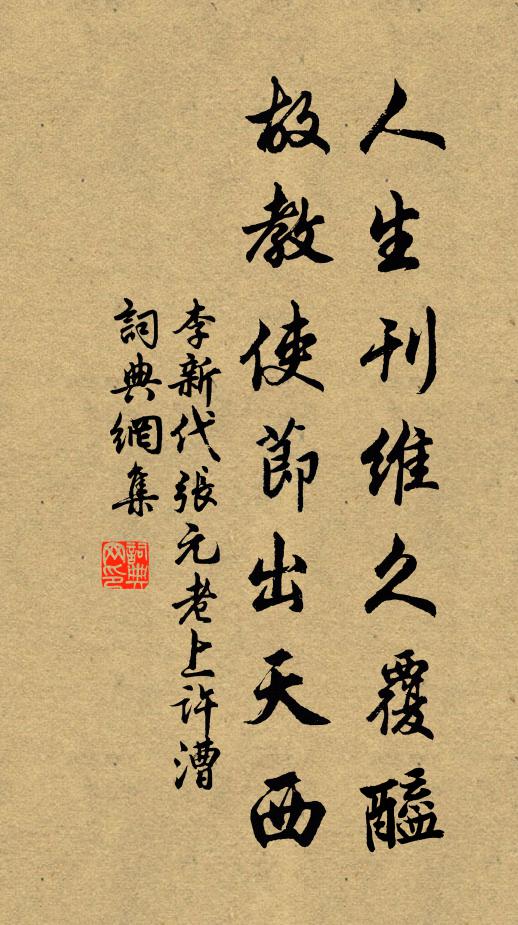 人生刊維久覆醯
故教使節出天西
李新代張元老上許漕
詞典網集
詞典網印